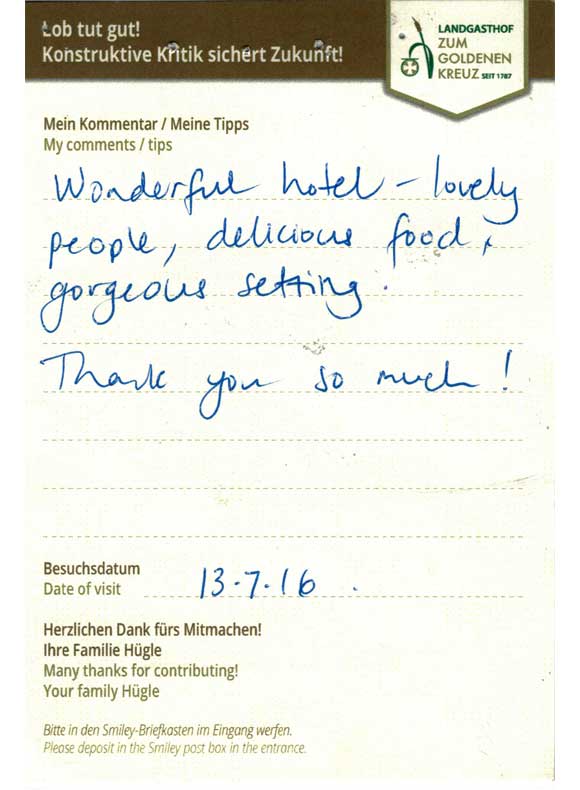 Lob tut gut!
Konstruktive Kritik sichert Zukunft!
LANDGASTHOF
ZUM
GOLDENEN
KREUZ SEIT 1787
Mein Kommentar / Meine Tipps
My comments / tips
Wonderful hotel – lovely
people, delicious food,
gorgeous setting.
Thank you so much!
Besuchsdatum
Date of visit 13.7.16.
Herzlichen Dank fürs Mitmachen!
Ihre Familie Hügle
Many thanks for contributing!
Your family Hügle
Bitte in den Smiley-Briefkasten im Eingang werfen.
Please deposit in the Smiley post box in the entrance.